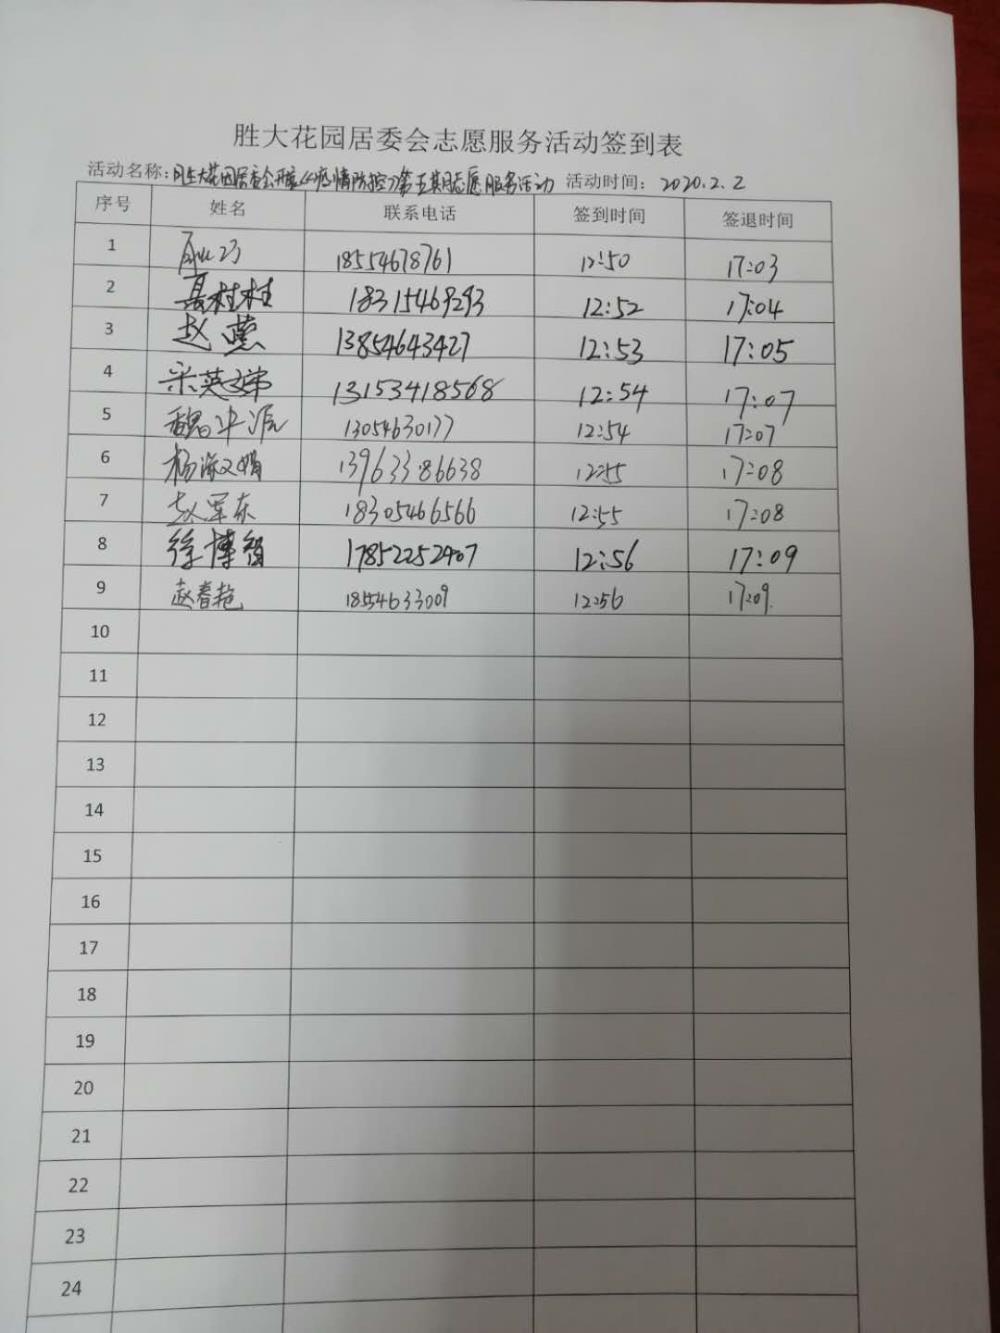 胜大花园居委会志愿服务活动签到表
活动名称:胜大花园居委会开展《疫情防控》第五期志愿服务活动 活动时间: 2020.2.2
序号 姓名 联系电话 签到时间 签退时间
1 18554678761 12:50 17:03
2 18315469293 12:52 17:04
3 赵 13854643427 12:53 17:05
4 13153418568 12:54 17:07
5 魏 13054630177 12:54 17:07
6 杨 13963386638 12:55 17:08
7 赵军东 18305466566 12:55 17:08
8 徐博智 17852252907 12:56 17:09
9 赵春艳 18554633009 12:56 17:09
10
11
12
13
14
15
16
17
18
19
20
21
22
23
24